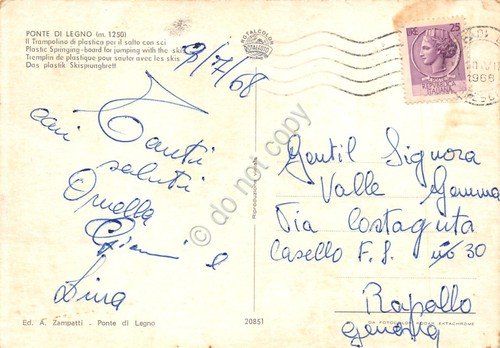 PONTE DI LEGNO (m. 1250)
Il Trampolino di plastica per il salto con sci
Plastic Springing-board for jumping with the skis
Tremplin de plastique pour sauter avec les skis
Das plastik Skisprunghett
9/7/68
Tanti
cari saluti
Ornella
Gianni e
Lina
Ed. A. Zampatti - Ponte di Legno
20851
LIRE 25
1968
Gentil Signora
Valle Gemma
Via Costaguta
Casello F. S. 30
Rapallo
Genova
DA FOTOCOLOR KODAK EKTACHROME
do not copy